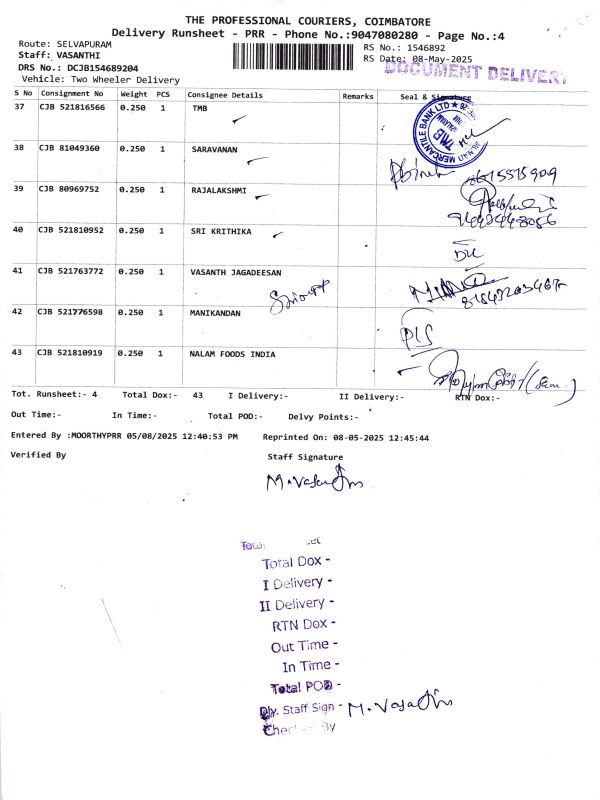 THE PROFESSIONAL COURIERS, COIMBATORE
Delivery Runsheet - PRR - Phone No.:9047080280 - Page No.:4
Route: SELVAPURAM
RS No.: 1546892
Staff: VASANTHI
RS Date: 08-May-2025
DRS No.: DCJB154689204
DOCUMENT DELIVERY
Vehicle: Two Wheeler Delivery
S No Consignment No Weight PCS Consignee Details Remarks Seal & Signature
37 CJB 521816566 0.250 1 TMB
38 CJB 81049360 0.250 1 SARAVANAN
39 CJB 80969752 0.250 1 RAJALAKSHMI
40 CJB 521810952 0.250 1 SRI KRITHIKA
41 CJB 521763772 0.250 1 VASANTH JAGADEESAN
42 CJB 521776598 0.250 1 MANIKANDAN
PLS
43 CJB 521810919 0.250 1 NALAM FOODS INDIA
Tot. Runsheet:- 4 Total Dox:- 43 I Delivery:- II Delivery:- RTN Dox:-
Out Time:- In Time:- Total POD:- Delvy Points:-
Entered By :MOORTHYPRR 05/08/2025 12:40:53 PM Reprinted On: 08-05-2025 12:45:44
Verified By Staff Signature
Total Dox -
I Delivery -
II Delivery -
RTN Dox -
Out Time -
In Time -
Total POD -
Dly. Staff Sign -